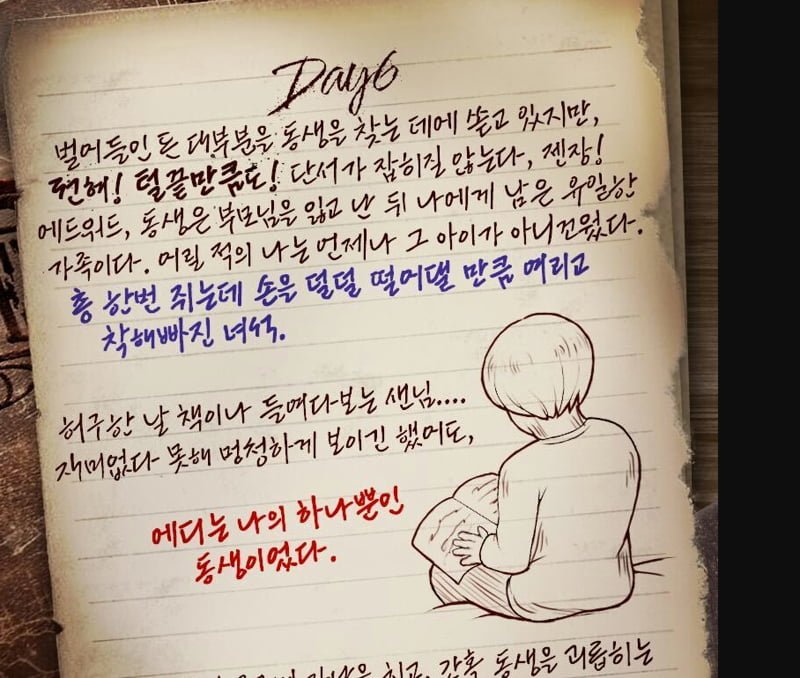 Day6
벌어들인 돈 대부분을 동생을 찾는 데에 쏟고 있지만,
전혀! 털끝만큼도! 단서가 잡히질 않는다, 젠장!
에드워드, 동생은 부모님을 잃고 난 뒤 나에게 남은 유일한
가족이다. 어릴 적의 나는 언제나 그 아이가 아니꼬웠다.
총 한번 쥐는데 손을 덜덜 떨어댈 만큼 여리고
착해빠진 녀석.
허구한 날 책이나 들여다보는 샌님....
재미없다 못해 멍청하게 보이긴 했어도,
에디는 나의 하나뿐인
동생이었다.
치고, 간혹 동생을 괴롭히는